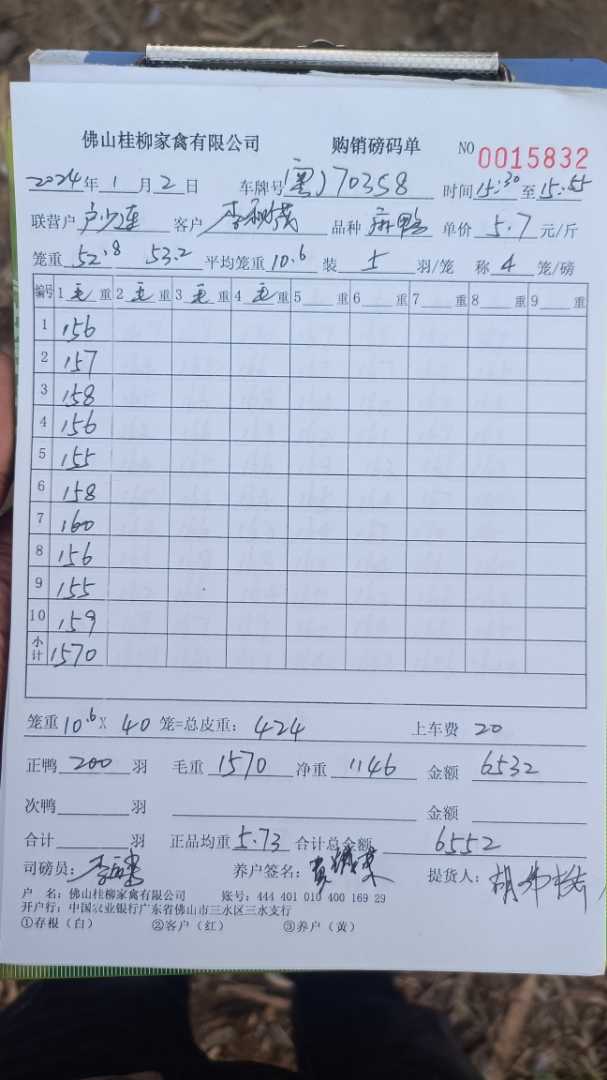 佛山桂柳家禽有限公司 购销磅码单 NO 0015832
2024年1月2日 车牌号(粤)70358 时间15:30至15:55
联营户 卢少连 客户 李 品种 麻鸭 单价 5.7 元/斤
笼重 52.8 53.2 平均笼重 10.6 装 5 羽/笼 称 4 笼/磅
编号 1毛重 2毛重 3毛重 4毛重 5重 6重 7重 8重 9重
1 156
2 157
3 158
4 156
5 155
6 158
7 160
8 156
9 155
10 159
小计 1570
笼重 10.6 X 40 笼=总皮重: 424 上车费 20
正鸭 200 羽 毛重 1570 净重 1146 金额 6532
次鸭 羽 金额
合计 羽 正品均重 5.73 合计总金额 6552
司磅员: 李 养户签名: 提货人: 胡
户 名: 佛山桂柳家禽有限公司 账号: 444 401 010 400 169 29
开户行: 中国农业银行广东省佛山市三水区三水支行
①存根(白) ②客户(红) ③养户(黄)